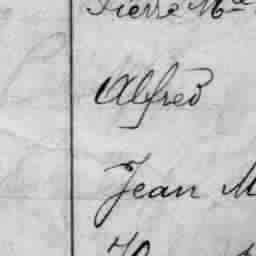 Pierre Mce
Alfred
Jean M